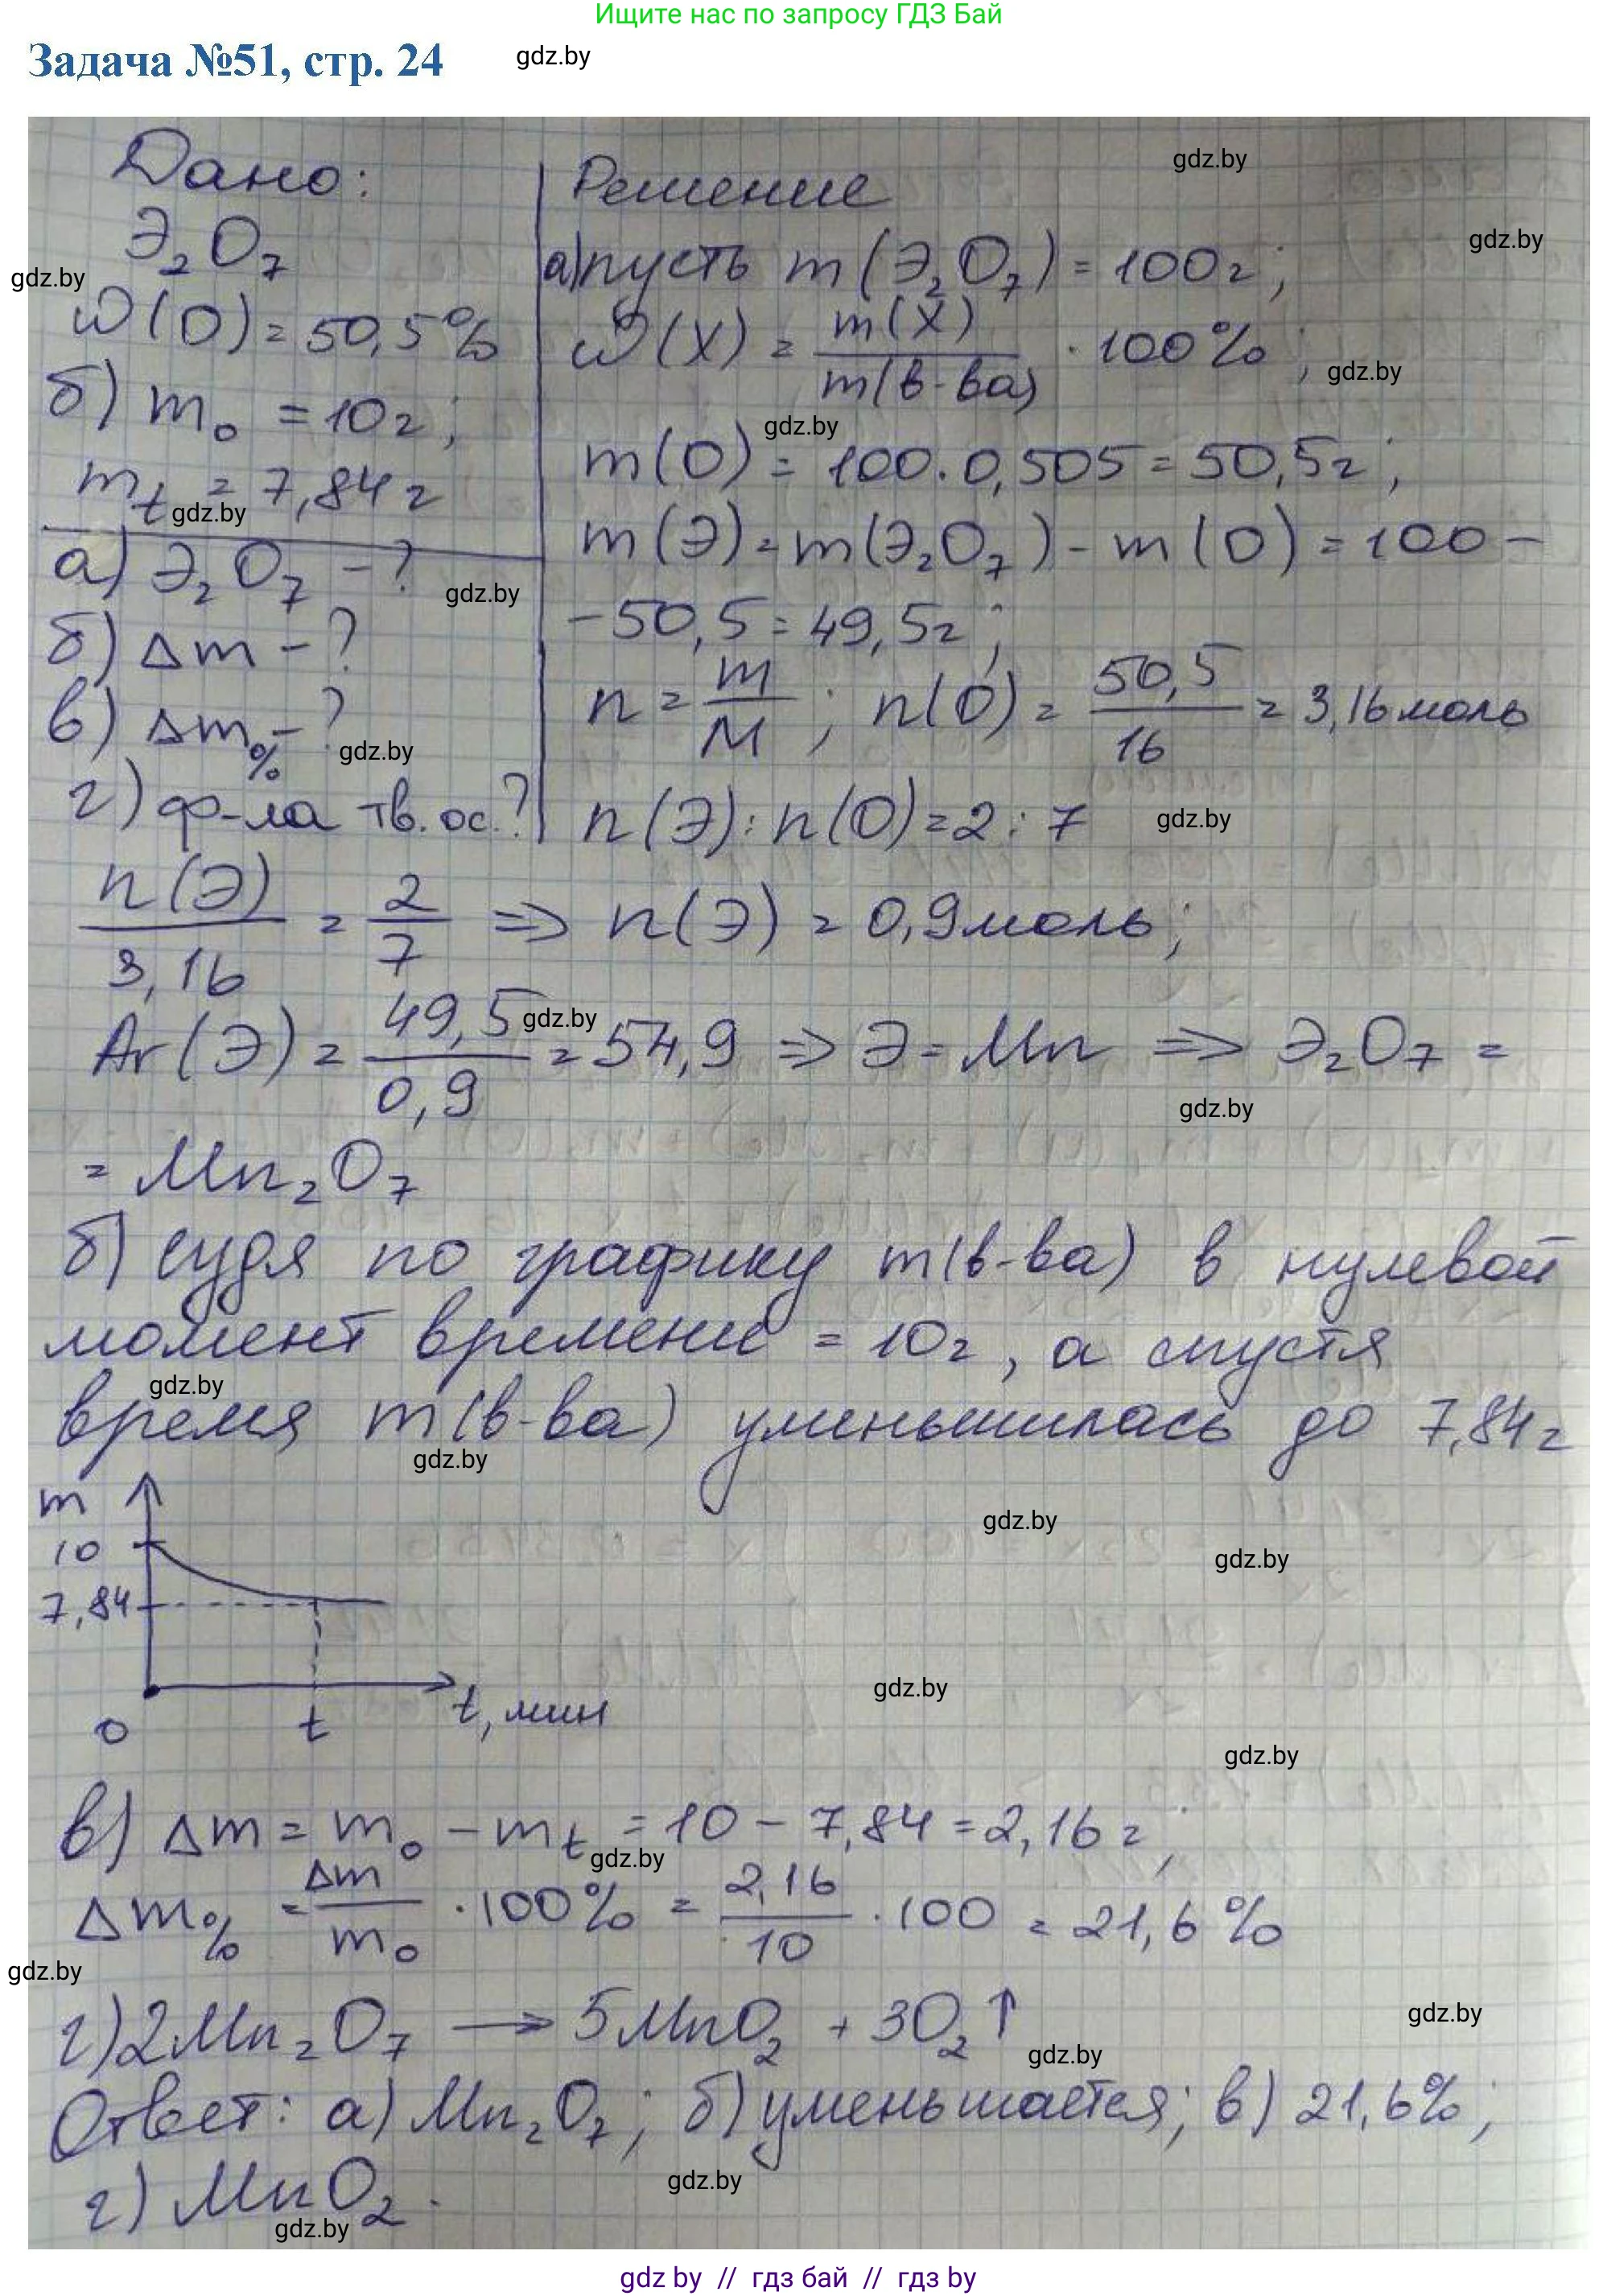 Ищите нас по запросу ГДЗ Бай
Задача №51, стр. 24
gdz.by
Дано:
Э₂O₇
ω(O) = 50,5%
б) m₀ = 10г;
mₜ = 7,84 г
а) Э₂O₇ - ?
б) Δm - ?
в) Δm% - ?
г) ф-ла тв. ос. ?
Решение
а) пусть m(Э₂O₇) = 100г;
ω(X) = m(X) / m(в-ва) · 100%;
m(O) = 100 · 0,505 = 50,5г;
m(Э) = m(Э₂O₇) - m(O) = 100 -
- 50,5 = 49,5г;
n = m/M; n(O) = 50,5/16 = 3,16 моль
n(Э) : n(O) = 2 : 7
n(Э)/3,16 = 2/7 => n(Э) = 0,9 моль;
Ar(Э) = 49,5/0,9 = 54,9 => Э = Mn => Э₂O₇ =
= Mn₂O₇
б) судя по графику m(в-ва) в нулевой
момент времени = 10г, а спустя
время m(в-ва) уменьшилась до 7,84г
m
10
7,84
0
t
t, мин
в) Δm = m₀ - mₜ = 10 - 7,84 = 2,16 г;
Δm% = Δm/m₀ · 100% = 2,16/10 · 100 = 21,6 %
г) 2Mn₂O₇ → 5MnO₂ + 3O₂↑
Ответ: а) Mn₂O₇; б) уменьшается; в) 21,6%;
г) MnO₂.
gdz by // гдз бай // гдз by